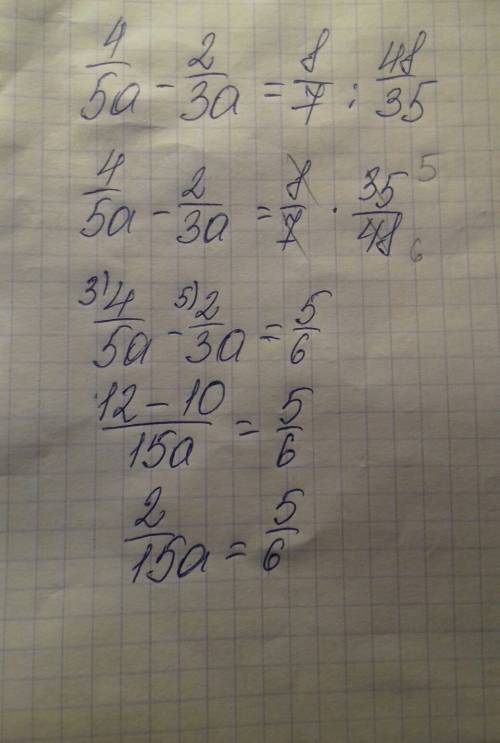 4/5a - 2/3a = 8/7 : 48/35
4/5a - 2/3a = 8/7 · 35/48 5 6
3) 4/5a - 5) 2/3a = 5/6
12 - 10/15a = 5/6
2/15a = 5/6